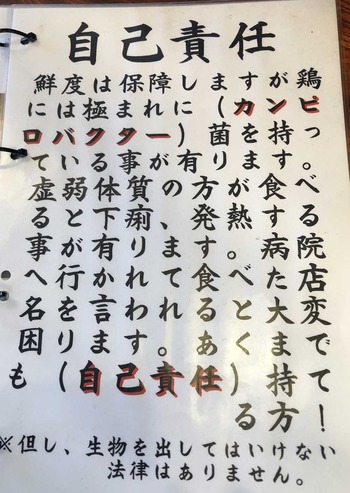 自己責任
鮮度は保障しますが鶏
には極まれに(カンピ
ロバクター)菌を持っ
ている事が有ります。
虚弱体質の方が食べ
ると下痢、発熱する
事が有ります。病院
へ行かれて食べた店
名を言われると大変
困ります。あくまで
も(自己責任)持て
る方!
※但し、生物を出してはいけない
法律はありません。